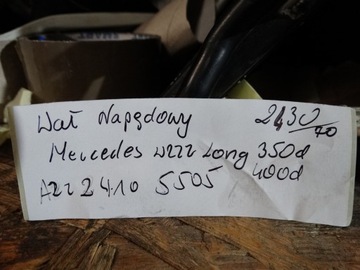 Wał Napędowy 2430/70
Mercedes W222 Long 350d
400d
A222 410 5505